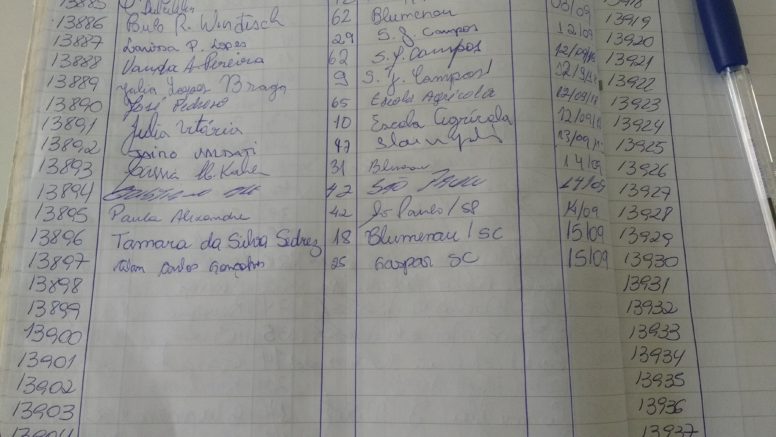 13885 13918
13886 R. Windisch 62 Blumenau 13919
13887 Larissa P. Lopes 29 S. J. Campos 12/09 13920
13888 Vanda A Pereira 62 S. J. Campos 12/09/18 13921
13889 Julia Lopes Braga 9 S. J. Campos 12/9/18 13922
13890 José Pedroso 65 Escola Agrícola 12/09/18 13923
13891 Julia Vitária 10 Escola Agrícola 12/09 13924
13892 47 13/09 13925
13893 31 14/09 13926
13894 42 São Paulo 14/09 13927
13895 Paula Alexandre 42 São Paulo/SP 14/09 13928
13896 Tamara da Silva Sedrez 18 Blumenau / SC 15/09 13929
13897 Carlos Gonçalves 25 Gaspar SC 15/09 13930
13898 13931
13899 13932
13900 13933
13901 13934
13902 13935
13903 13936
13904 13937